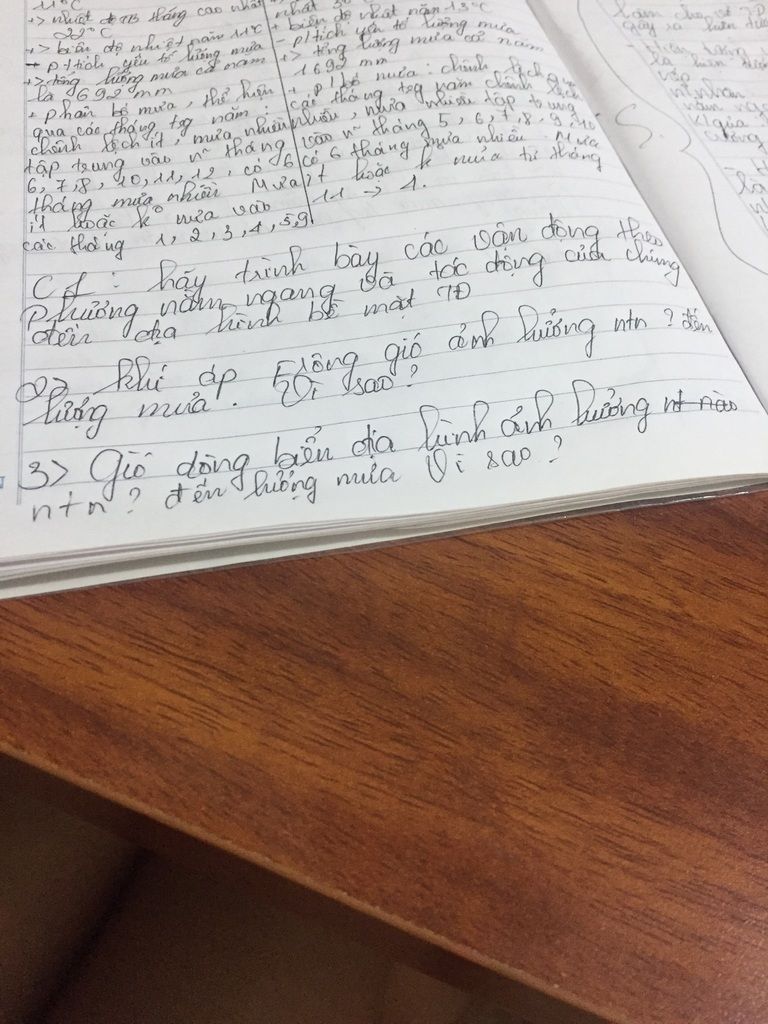 11°C
-> nhiệt độ TB tháng cao nhất
22°C
-> biên độ nhiệt năm 11°C
- p/tích yếu tố lượng mưa
-> tổng lượng mưa cả năm
là 692 mm
+ phân bố mưa, thể hiện
qua các tháng tg năm:
chênh lệch ít, mưa nhiều
tập trung vào n~ tháng
6, 7, 8, 10, 11, 12, có 6
tháng mưa nhiều Mưa
ít hoặc k mưa vào
các tháng 1, 2, 3, 4, 5, 9
nhất 30
+ biên độ nhiệt năm 13°C
- p/tích yếu tố lượng mưa
-> tổng lượng mưa cả năm
1692 mm
+ p/bố mưa: chênh lệch
các tháng tg năm chênh lệch
nhiều, mưa nhiều tập trung
vào n~ tháng 5, 6, 7, 8, 9, 10
có 6 tháng mưa nhiều. Mưa
ít hoặc k mưa từ tháng
11 -> 1.
C1: hãy trình bày các vận động theo
phương nằm ngang và tác động của chúng
đến địa hình bề mặt TĐ
2> khí áp frông gió ảnh hưởng ntn? đến
lượng mưa. Vì sao?
3> Gió dòng biển địa hình ảnh hưởng
ntn? đến lượng mưa Vì sao?